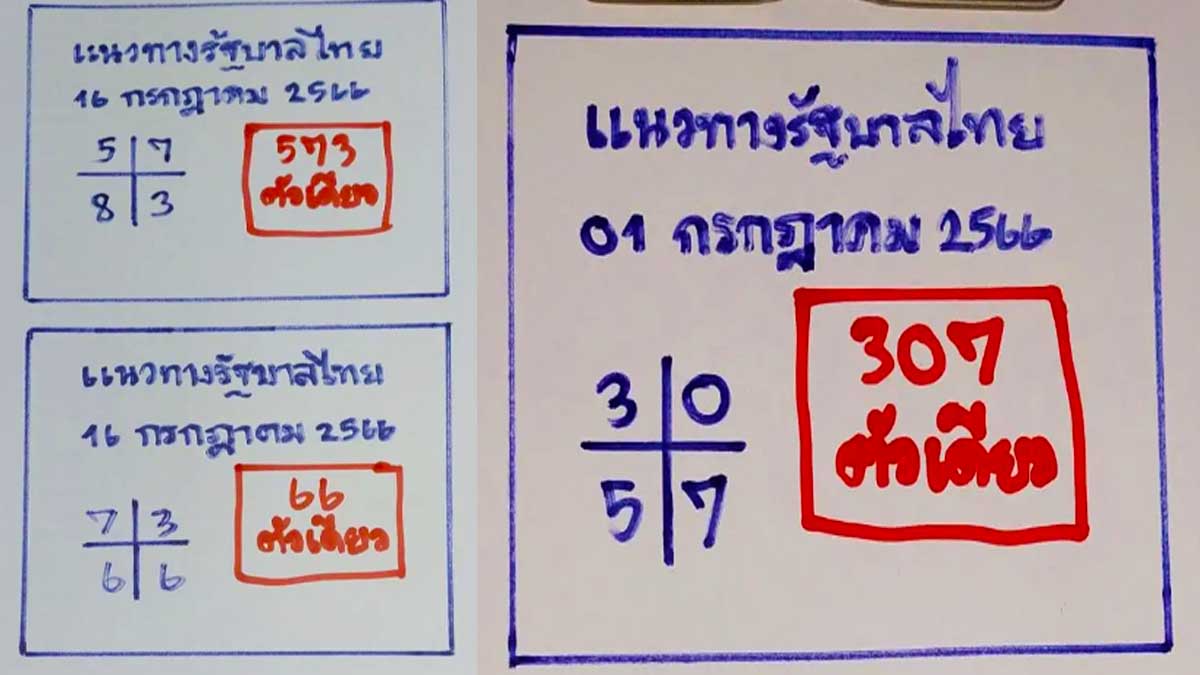 แนวทางรัฐบาลไทย
16 กรกฎาคม 2566
5 7
8 3
573
ตัวเดียว
แนวทางรัฐบาลไทย
16 กรกฎาคม 2566
7 3
6 6
66
ตัวเดียว
แนวทางรัฐบาลไทย
01 กรกฎาคม 2566
3 0
5 7
307
ตัวเดียว